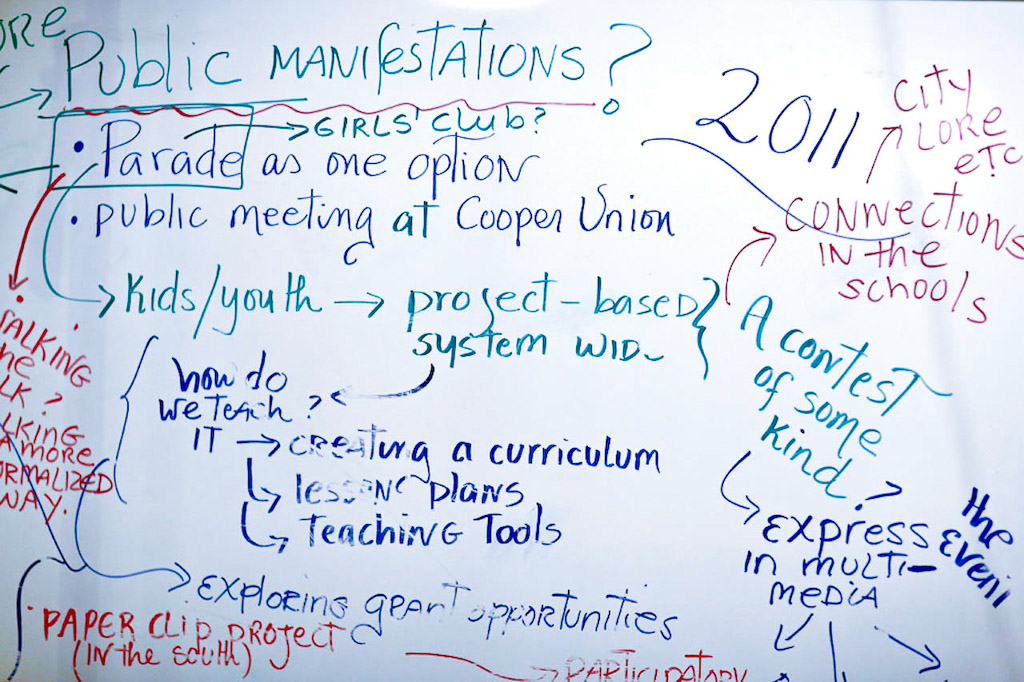 Public MANIFESTATIONS?
→ GIRLS' club?
• Parade as one option
• public meeting at Cooper Union
2011
City
LORE
etc
CONNections
IN the
schools
Kids/youth → project-based
system WID
A contest
of some
kind?
how do
we teach?
IT → creating a curriculum
lesson plans
Teaching Tools
EXPRESS
in multi-
MEDIA
the
Exploring grant opportunities
PAPER CLIP PROJECT
(IN the south)
PARTICIPATORY
A MORE
WAY.